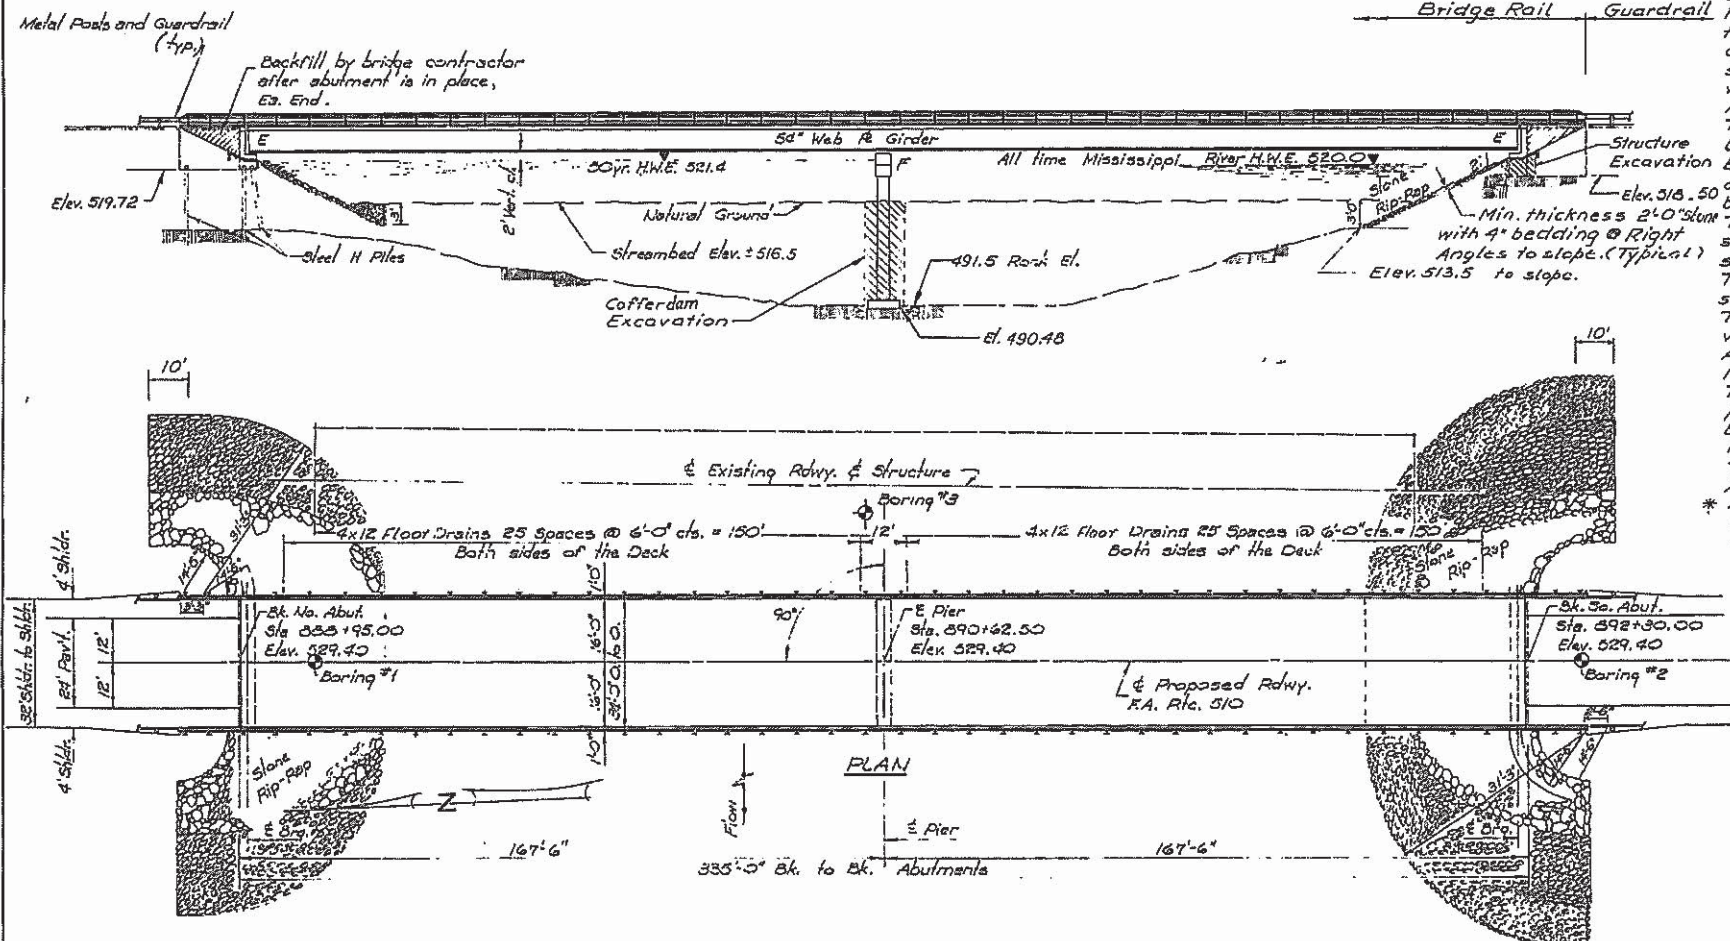 Metal Posts and Guardrail
(typ.)
Backfill by bridge contractor
after abutment is in place,
Ea. End.
Bridge Rail
Guardrail
E
54" Web ℄ Girder
E
50yr. H.W.E. 521.4
F
All time Mississippi River H.W.E. 520.0
Structure
Excavation
Elev. 519.72
2' Vert. cl.
Natural Ground
Stone
Rip-Rap
3'-0"
Elev. 518.50
Min. thickness 2'-0" Stone
with 4" bedding @ Right
Angles to slope. (Typical)
Elev. 513.5 to slope.
Steel H Piles
Streambed Elev. ±516.5
491.5 Rock El.
Cofferdam
Excavation
El. 490.48
10'
10'
℄ Existing Rdwy. & Structure
Boring #3
4x12 Floor Drains 25 Spaces @ 6'-0" cts. = 150'
Both sides of the Deck
12'
4x12 Floor Drains 25 Spaces @ 6'-0" cts. = 150'
Both sides of the Deck
Stone
Rip-Rap
31'-3"
4' Shldr.
32' Shldr. to Shldr.
24' Pav't.
12'
12'
4' Shldr.
Bk. No. Abut.
Sta 888+95.00
Elev. 529.40
Boring #1
1'-0"
16'-0"
16'-0"
34'-0" O. to O.
1'-0"
90°
℄ Pier
Sta. 890+62.50
Elev. 529.40
℄ Proposed Rdwy.
F.A. Rte. 510
Bk. So. Abut.
Sta. 892+30.00
Elev. 529.40
Boring #2
PLAN
Stone
Rip-Rap
Z
Flow
31'-3"
℄ Brg.
℄ Pier
℄ Brg.
167'-6"
167'-6"
335'-0" Bk. to Bk. Abutments
*